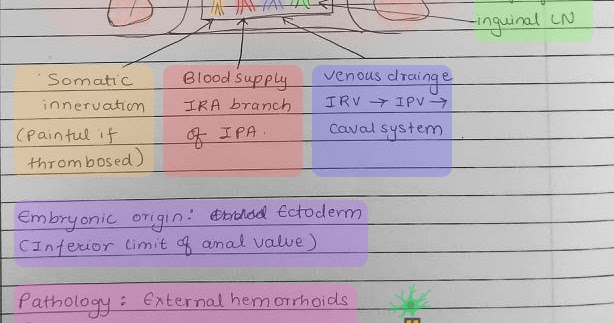 inguinal LN
Somatic
innervation
(Painful if
thrombosed)
Blood supply
IRA branch
of IPA.
venous drainge
IRV → IPV →
Caval system
Embryonic origin: Ectoderm
(Inferior limit of anal valve)
Pathology: External hemorrhoids